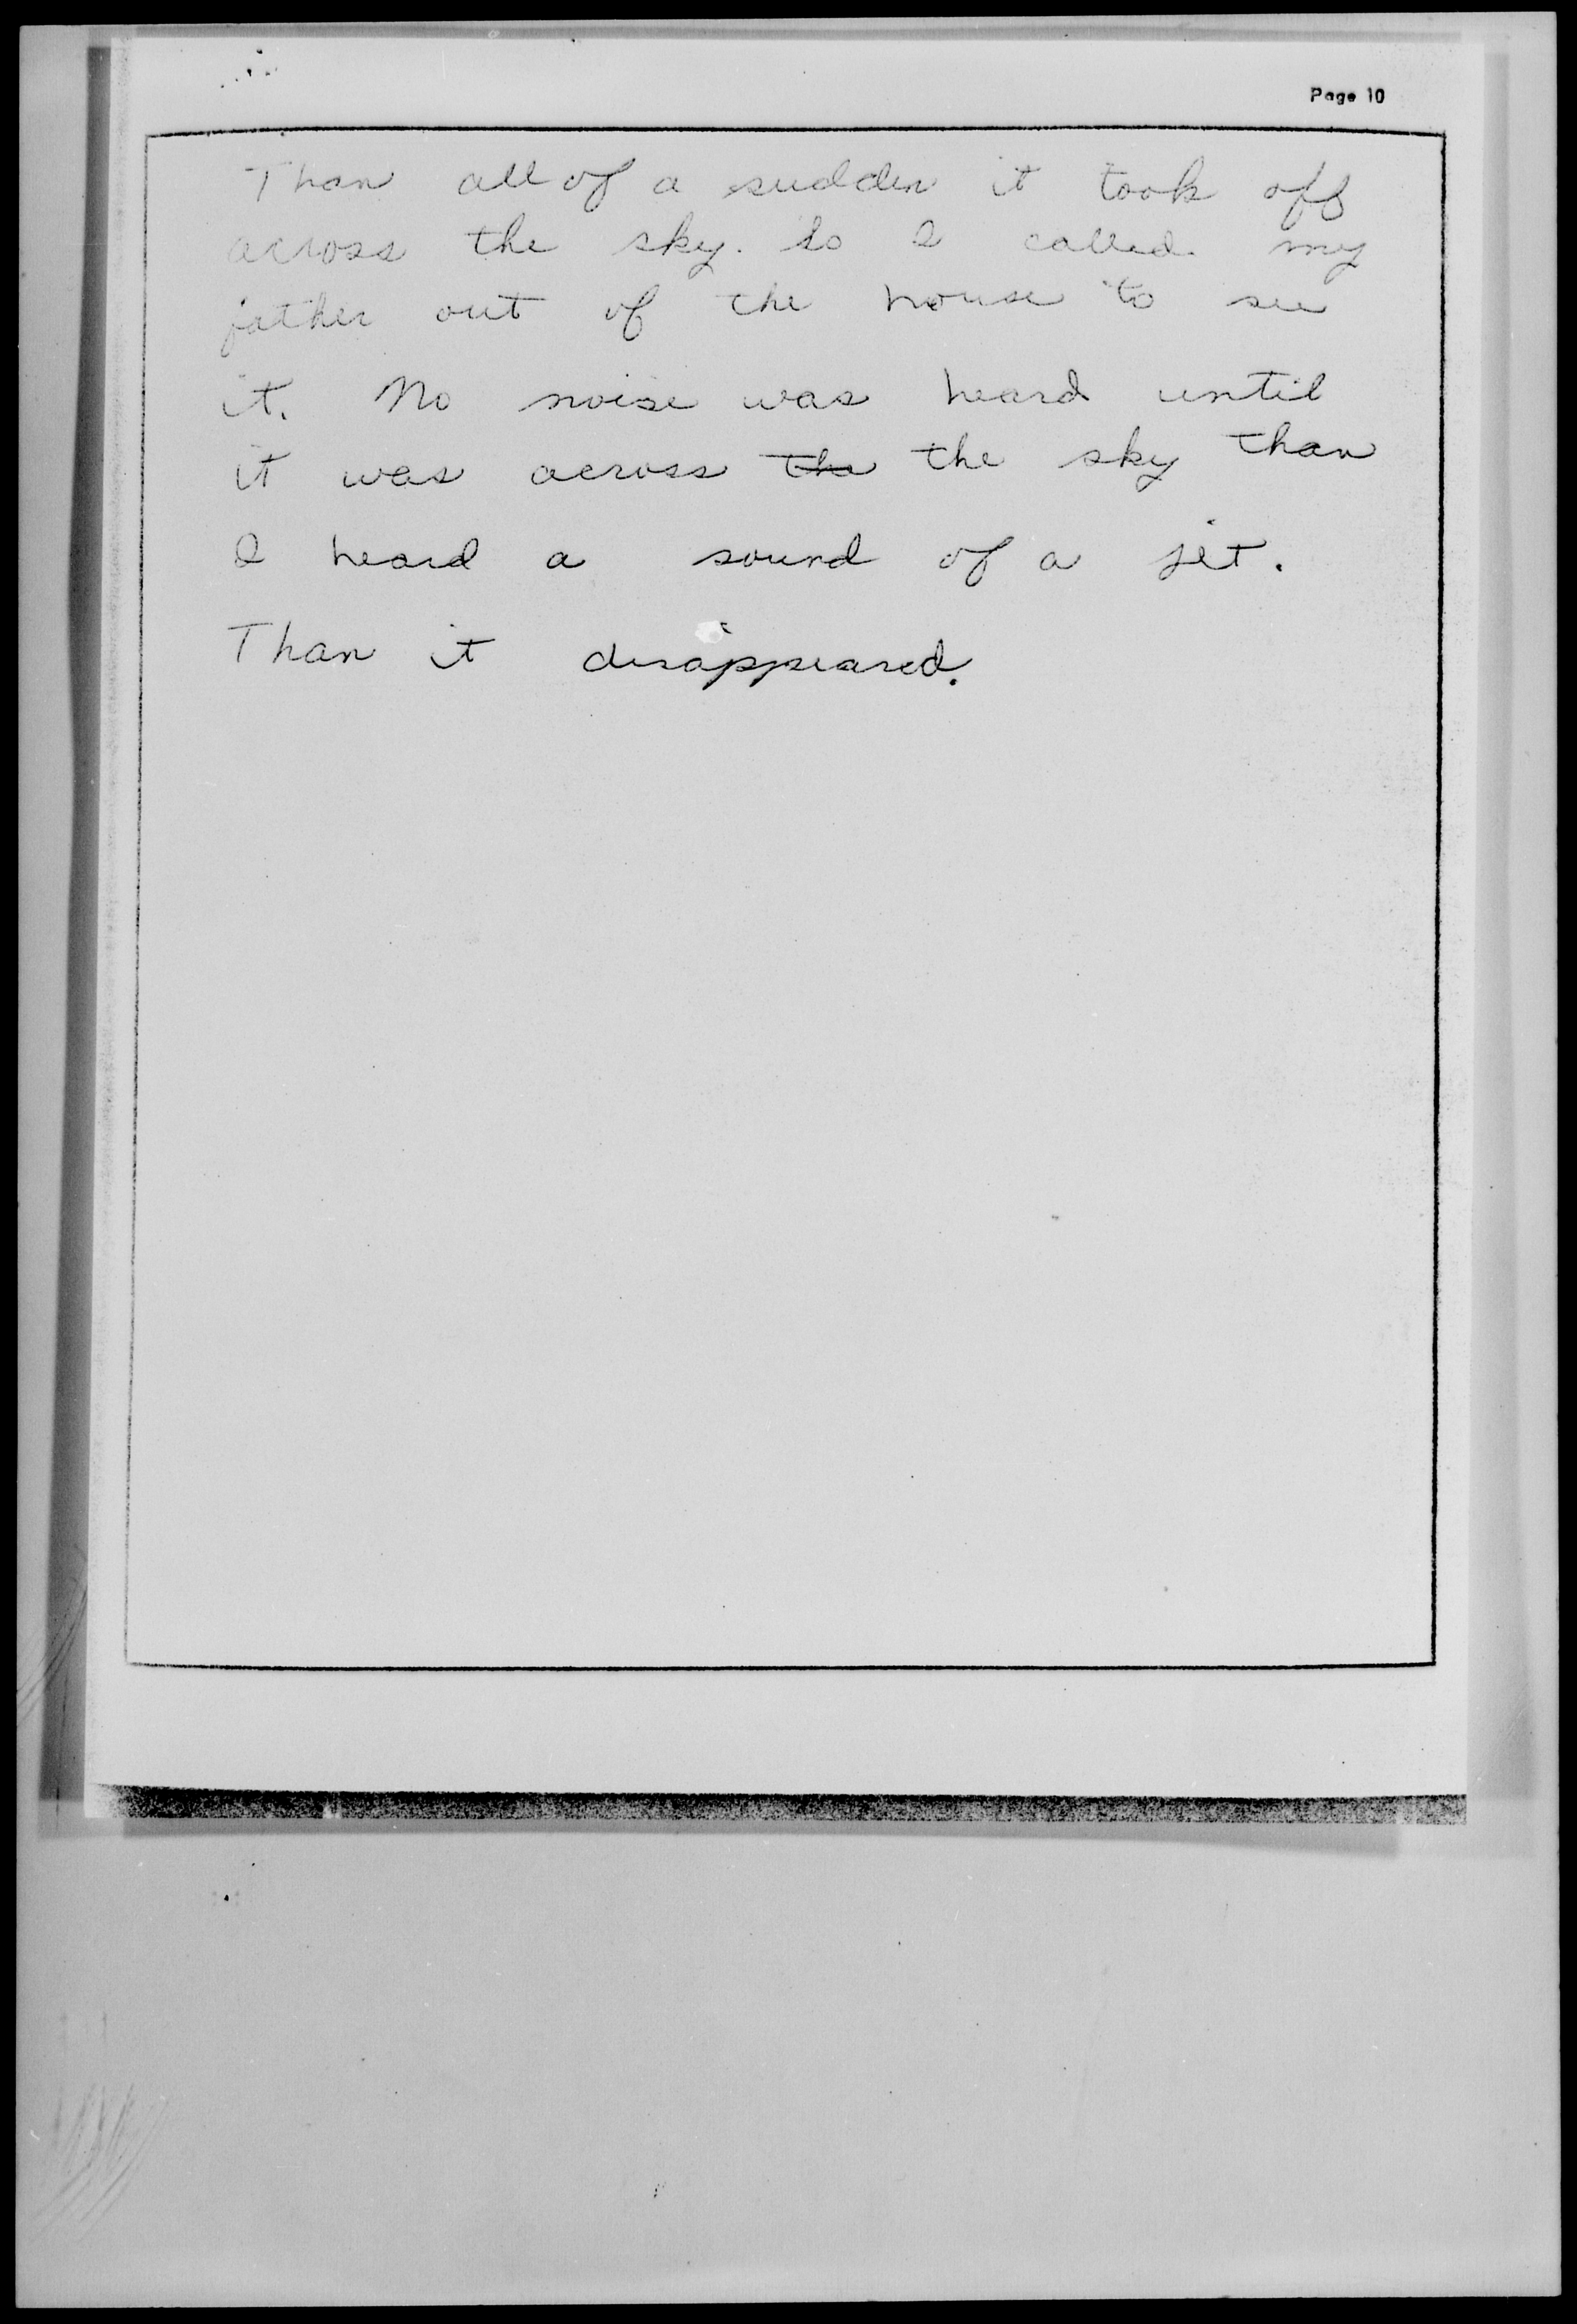 Page 10
Than all of a sudden it took off
across the sky. So I called my
father out of the house to see
it. No noise was heard until
it was across the the sky than
I heard a sound of a jet.
Than it disappeared.